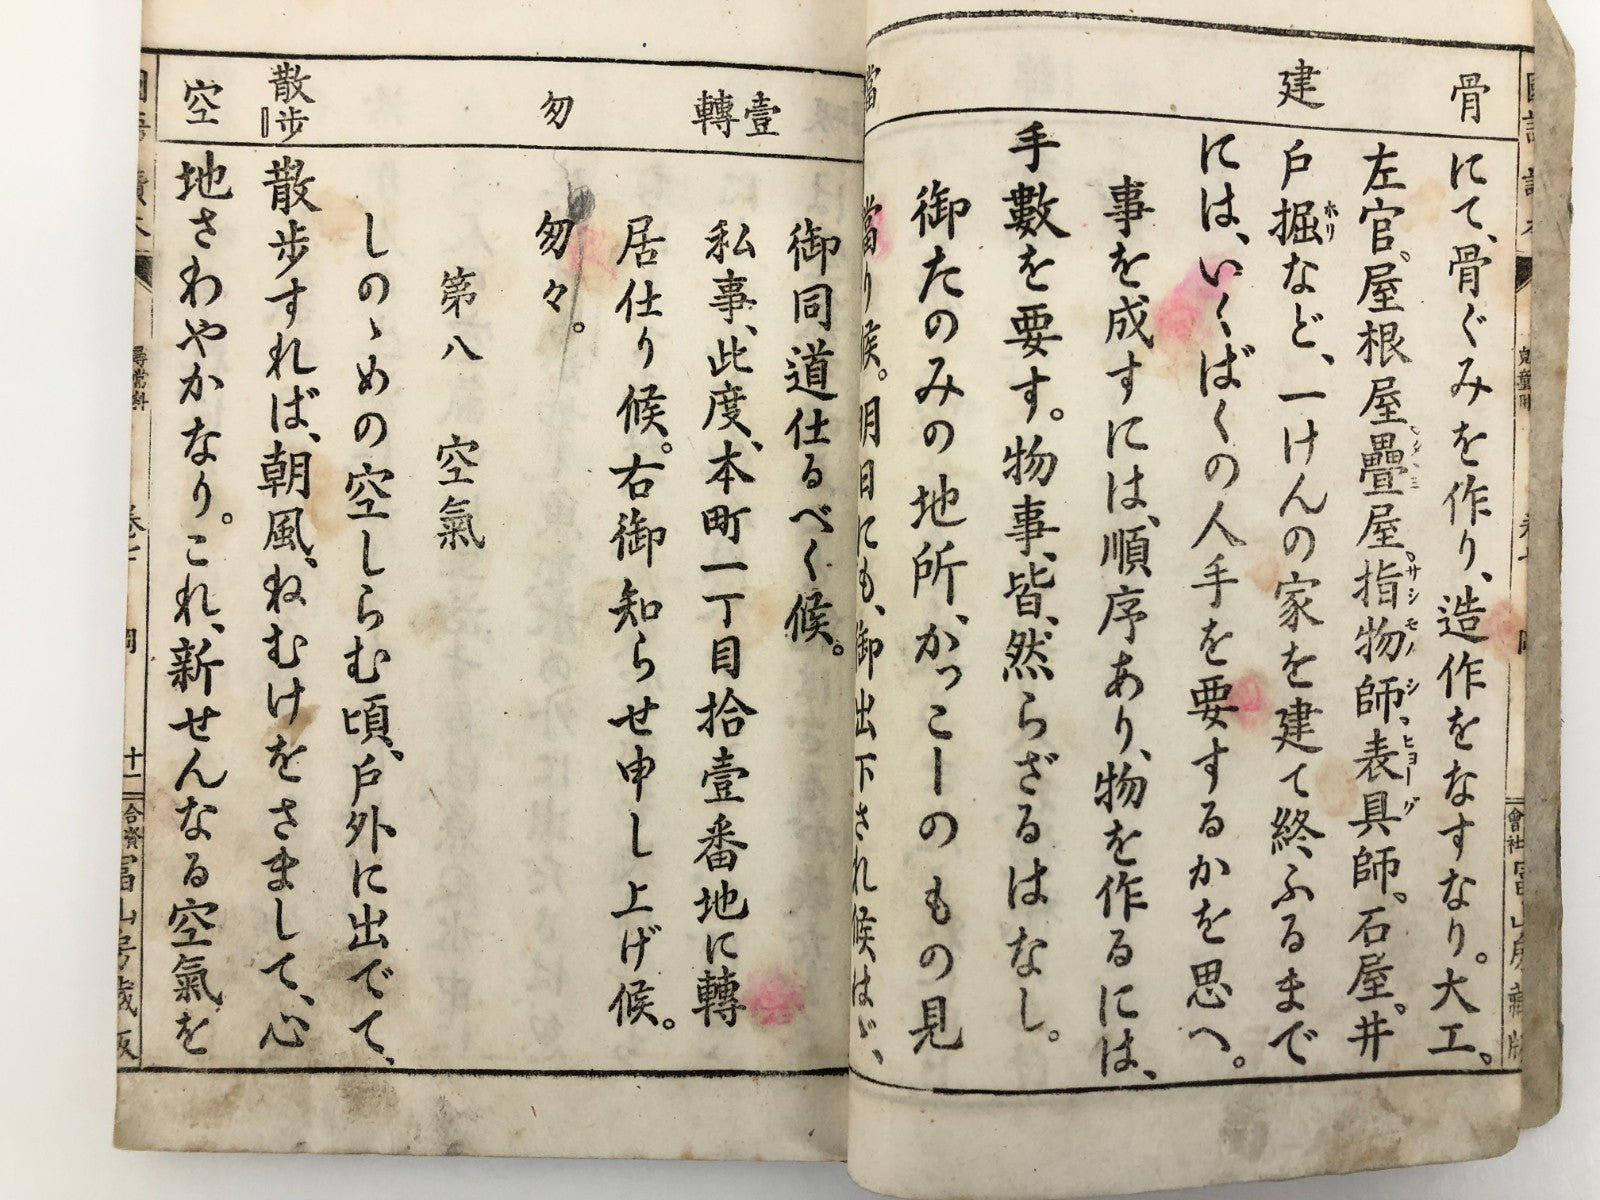 骨
建
當
にて、骨ぐみを作り、造作をなすなり。大工。
左官。屋根屋。疊屋。指物師、表具師。石屋。井
サシモノシ
ヒョーグ
戶掘など、一けんの家を建て終ふるまで
ホリ
には、いくばくの人手を要するかを思へ。
事を成すには、順序あり、物を作るには、
手數を要す。物事、皆、然らざるはなし。
御たのみの地所、かっこーのもの見
當り候。明日にも、御出下され候はゞ、
壹
轉
勿
散步
空
御同道仕るべく候。
私事、此度、本町一丁目拾壹番地に轉
居仕り候。右御知らせ申し上げ候。
勿々。
第八 空氣
しのゝめの空しらむ頃、戶外に出でて、
散步すれば、朝風、ねむけをさまして、心
地さわやかなり。これ、新せんなる空氣を
尋常科
十一
合資
富山房藏版
會社